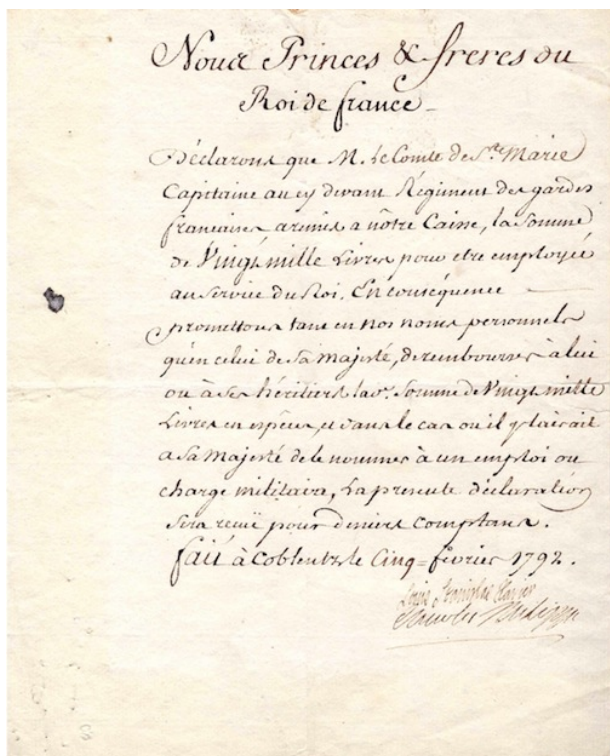 Nous Princes & freres du
Roi de france
Déclarons que M. Le Comte de Ste. Marie
Capitaine au cy devant Régiment des gardes
francaises a remis a nôtre Caisse, la Somme
de Vingt mille Livres pour etre employée
au Service du Roi. En conséquence
promettons tant en nos noms personnels
qu'en celui de Sa Majesté, de rembourser à lui
ou à Ses héritiers lad. Somme de Vingt mille
Livres en espèces, et dans le cas ou il plairait
a Sa Majesté de le nommer à un emploi ou
charge militaire, La presente déclaration
Sera recuë pour deniers comptans.
fait à Coblentz le Cinq février 1792.
Louis Stanislas Xavier
Charles Philippe